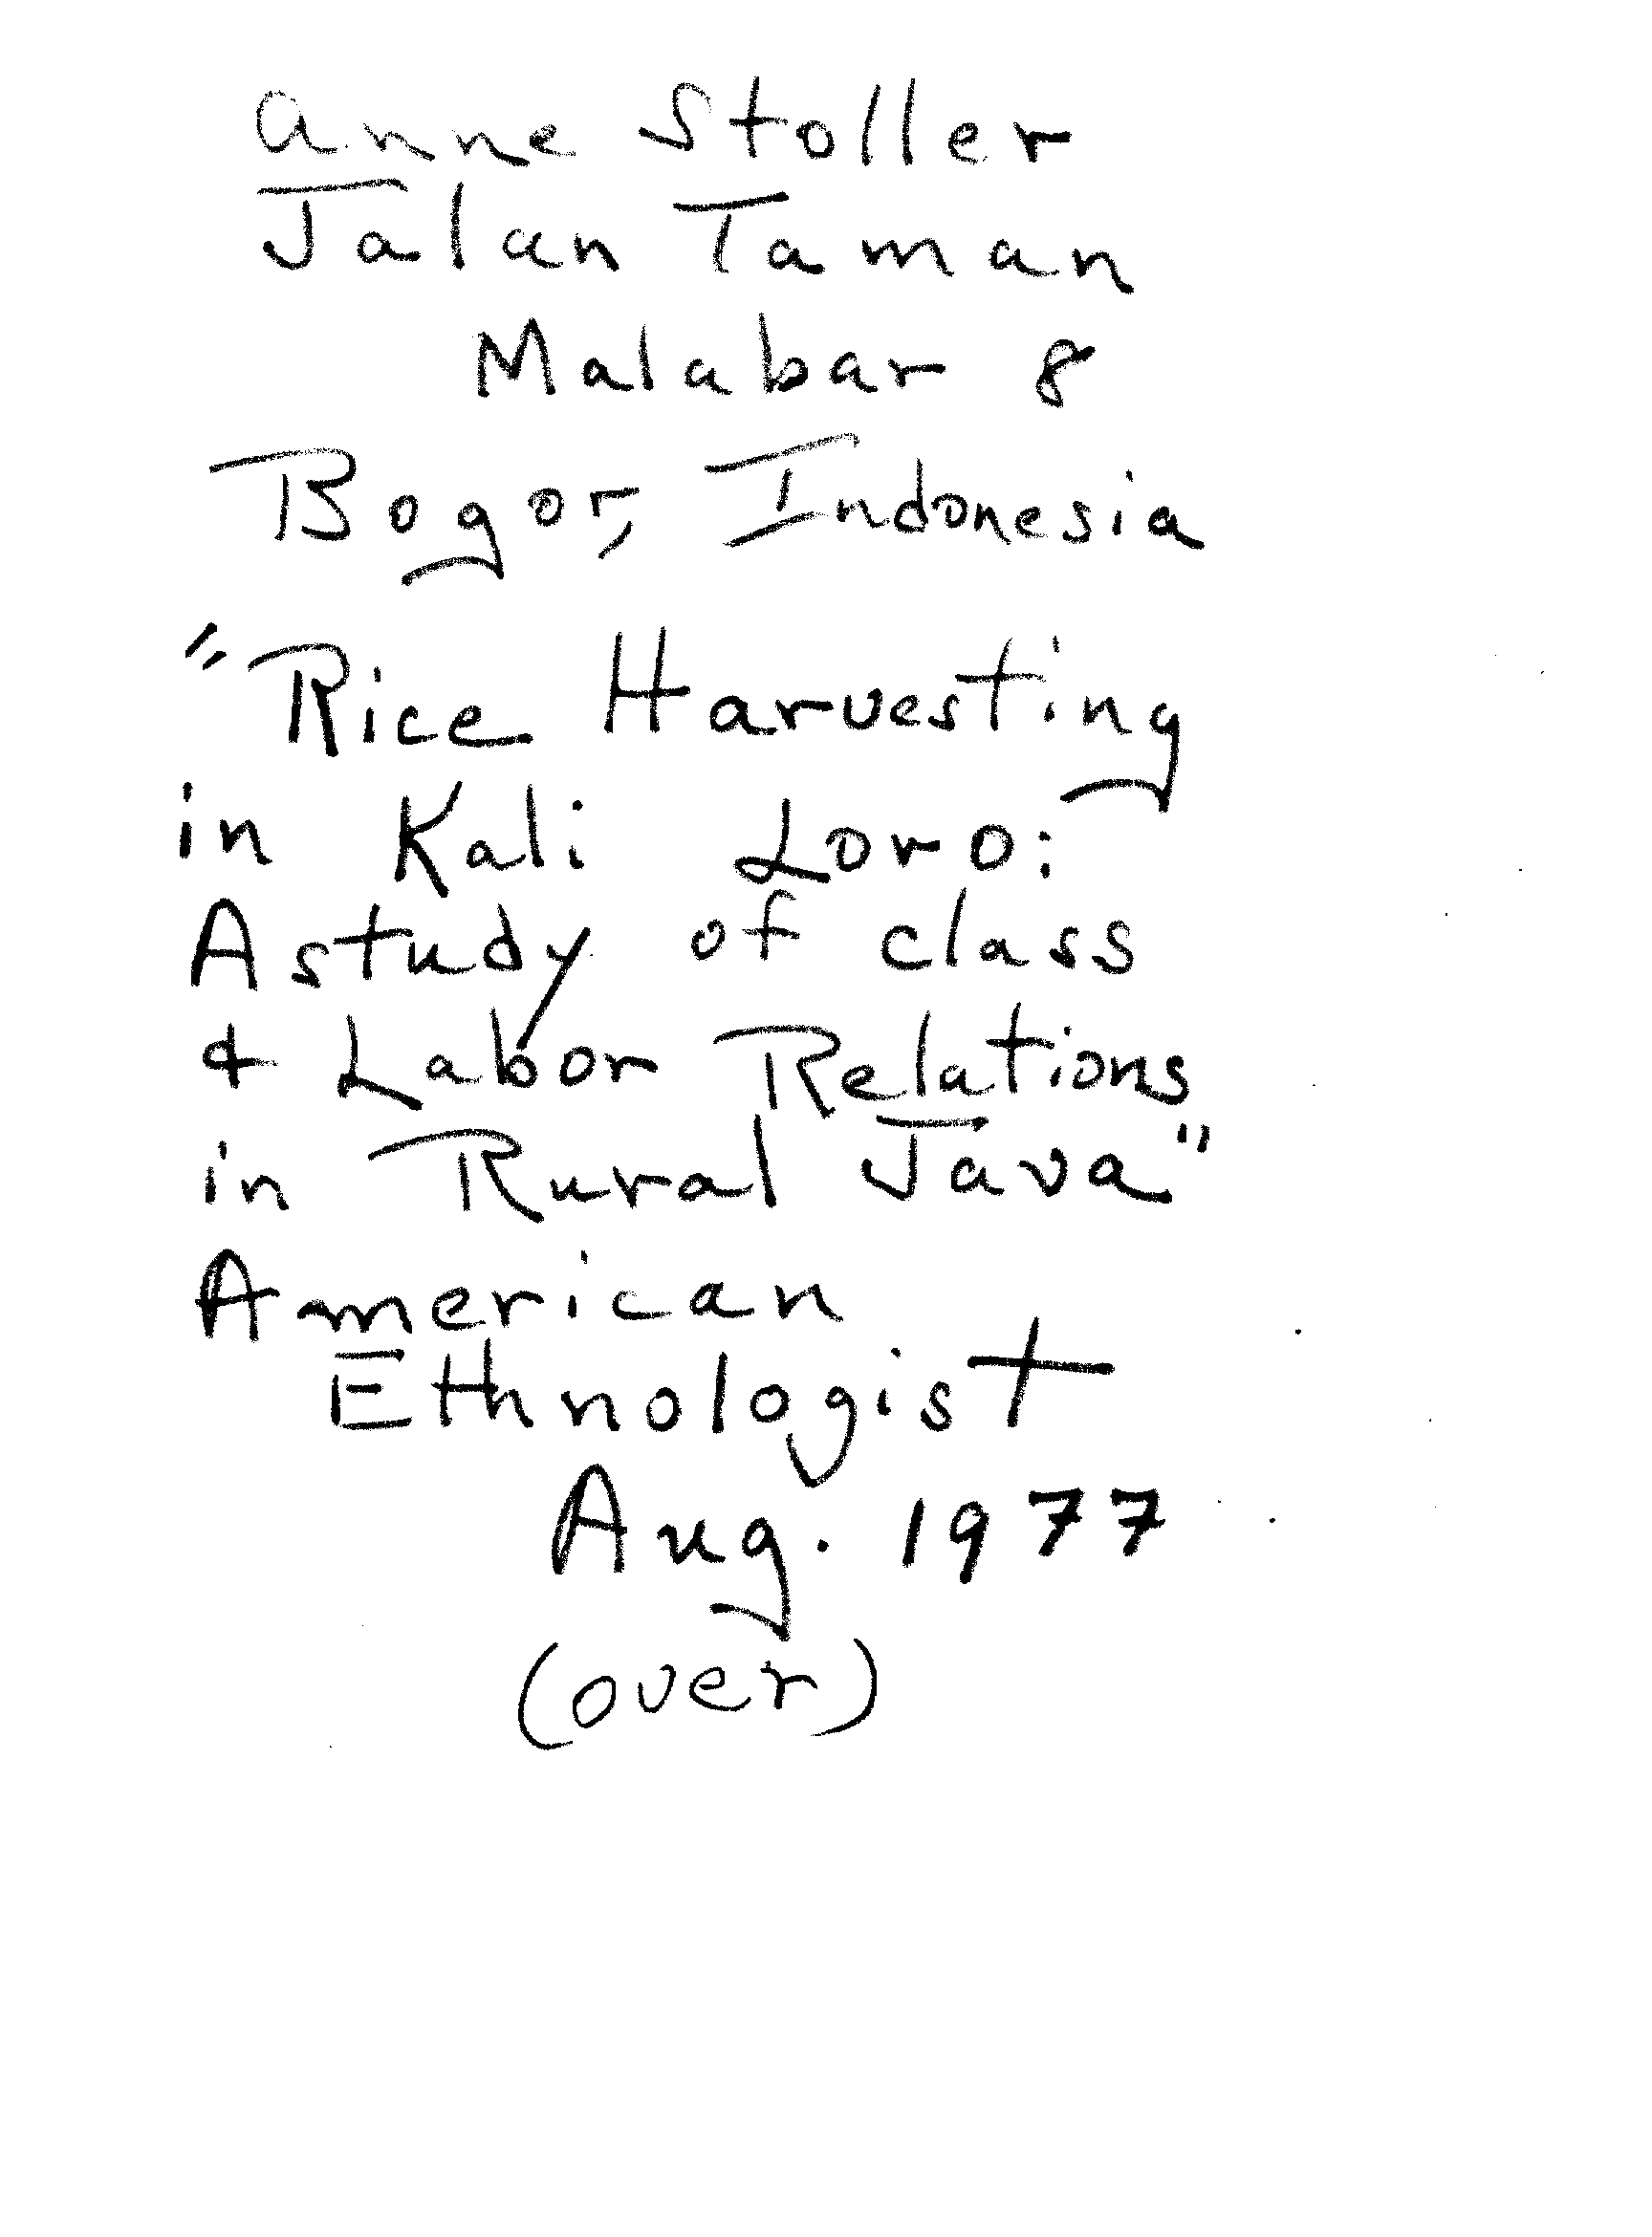 Anne Stoller
Jalan Taman
Malabar 8
Bogor, Indonesia
"Rice Harvesting
in Kali Loro:
A study of class
& Labor Relations
in Rural Java"
American
Ethnologist
Aug. 1977
(over)